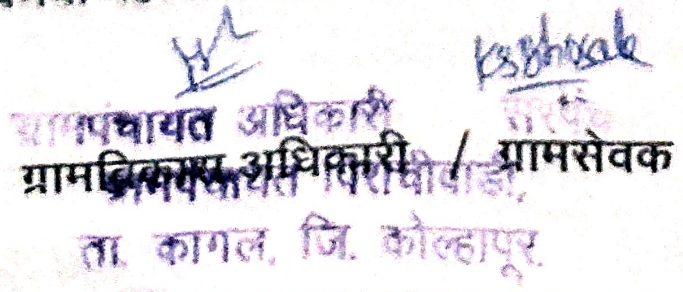 KSBhosale
ग्रामपंचायत अधिकारी सरपंच
ग्रामविकास अधिकारी / ग्रामसेवक
ता. कागल, जि. कोल्हापूर.